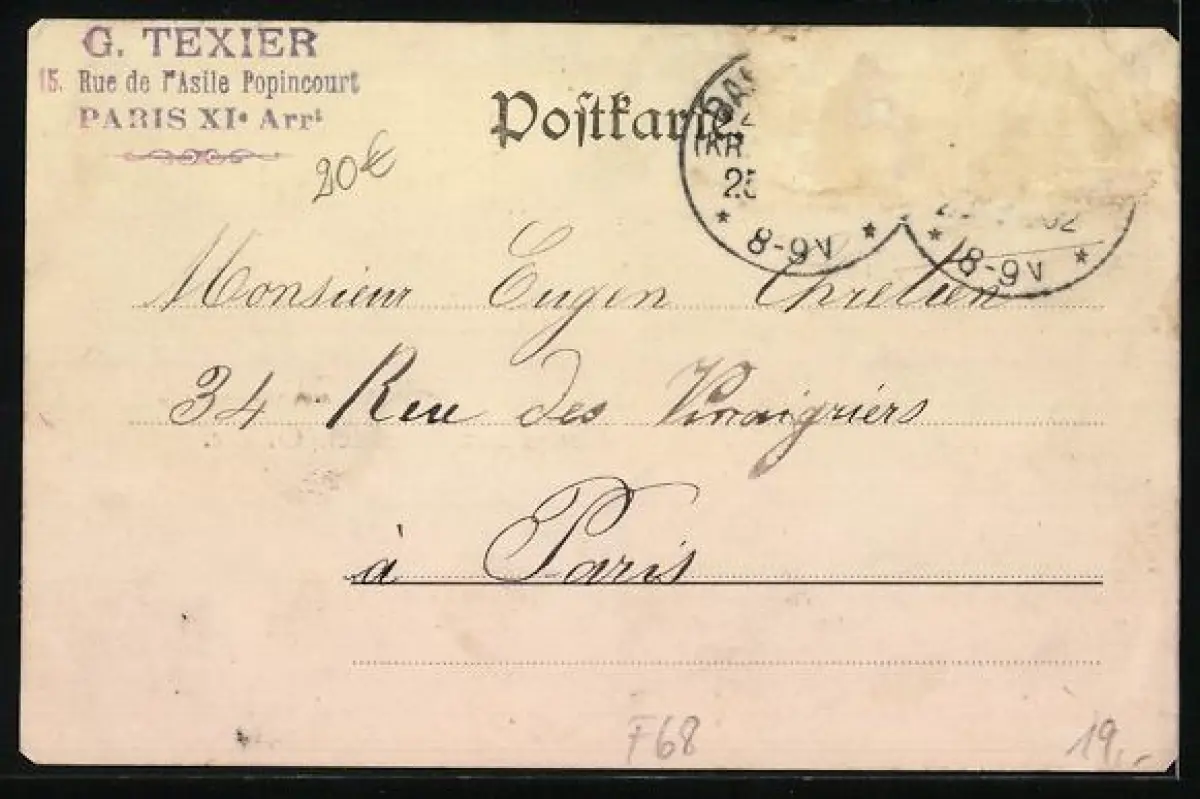 G. TEXIER
15. Rue de l'Asile Popincourt
PARIS XIe Arrt
20€
Postkarte
BA
(KR.
25
* 8-9V *
02
* 8-9V *
Monsieur Eugen Chretien
34 Rue des Vinaigriers
à Paris
F68
19,-